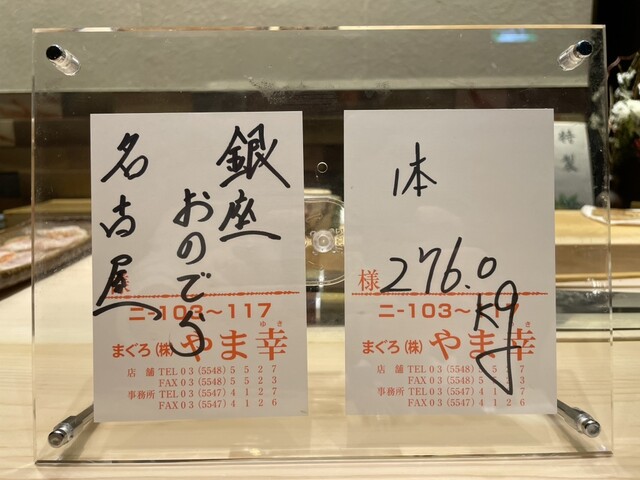 銀座
おのでら
名古屋
様
ニ-103〜117
まぐろ(株)やま幸
ゆき
店舗 TEL 03 (5548) 5527
FAX 03 (5548) 5523
事務所 TEL 03 (5547) 4127
FAX 03 (5547) 4126
体
276.0
kg
様
ニ-103〜117
まぐろ(株)やま幸
ゆき
店舗 TEL 03 (5548) 5527
FAX 03 (5548) 5523
事務所 TEL 03 (5547) 4127
FAX 03 (5547) 4126
特製